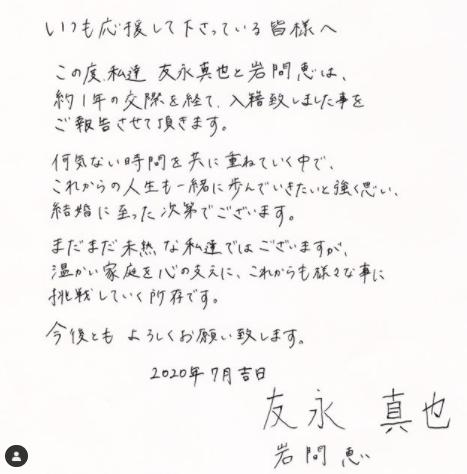 いつも応援して下さっている皆様へ
この度、私達 友永真也と岩間恵は、
約1年の交際を経て、入籍致しました事を
ご報告させて頂きます。
何気ない時間を共に重ねていく中で、
これからの人生も一緒に歩んでいきたいと強く思い、
結婚に至った次第でございます。
まだまだ未熟な私達ではございますが、
温かい家庭を心の支えに、これからも様々な事に
挑戦していく所存です。
今後とも よろしくお願い致します。
2020年7月吉日
友永 真也
岩間 恵